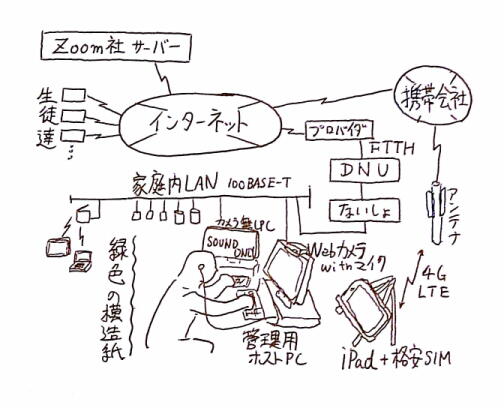 Zoom社 サーバー
生徒達
⋮
インターネット
携帯会社
プロバイダ
FTTH
DNU
ないしょ
アンテナ
家庭内LAN 100BASE-T
カメラ無しPC
SOUND
ONLY
Webカメラ
withマイク
4G
LTE
緑色の模造紙
管理用
ホストPC
iPad+格安SIM